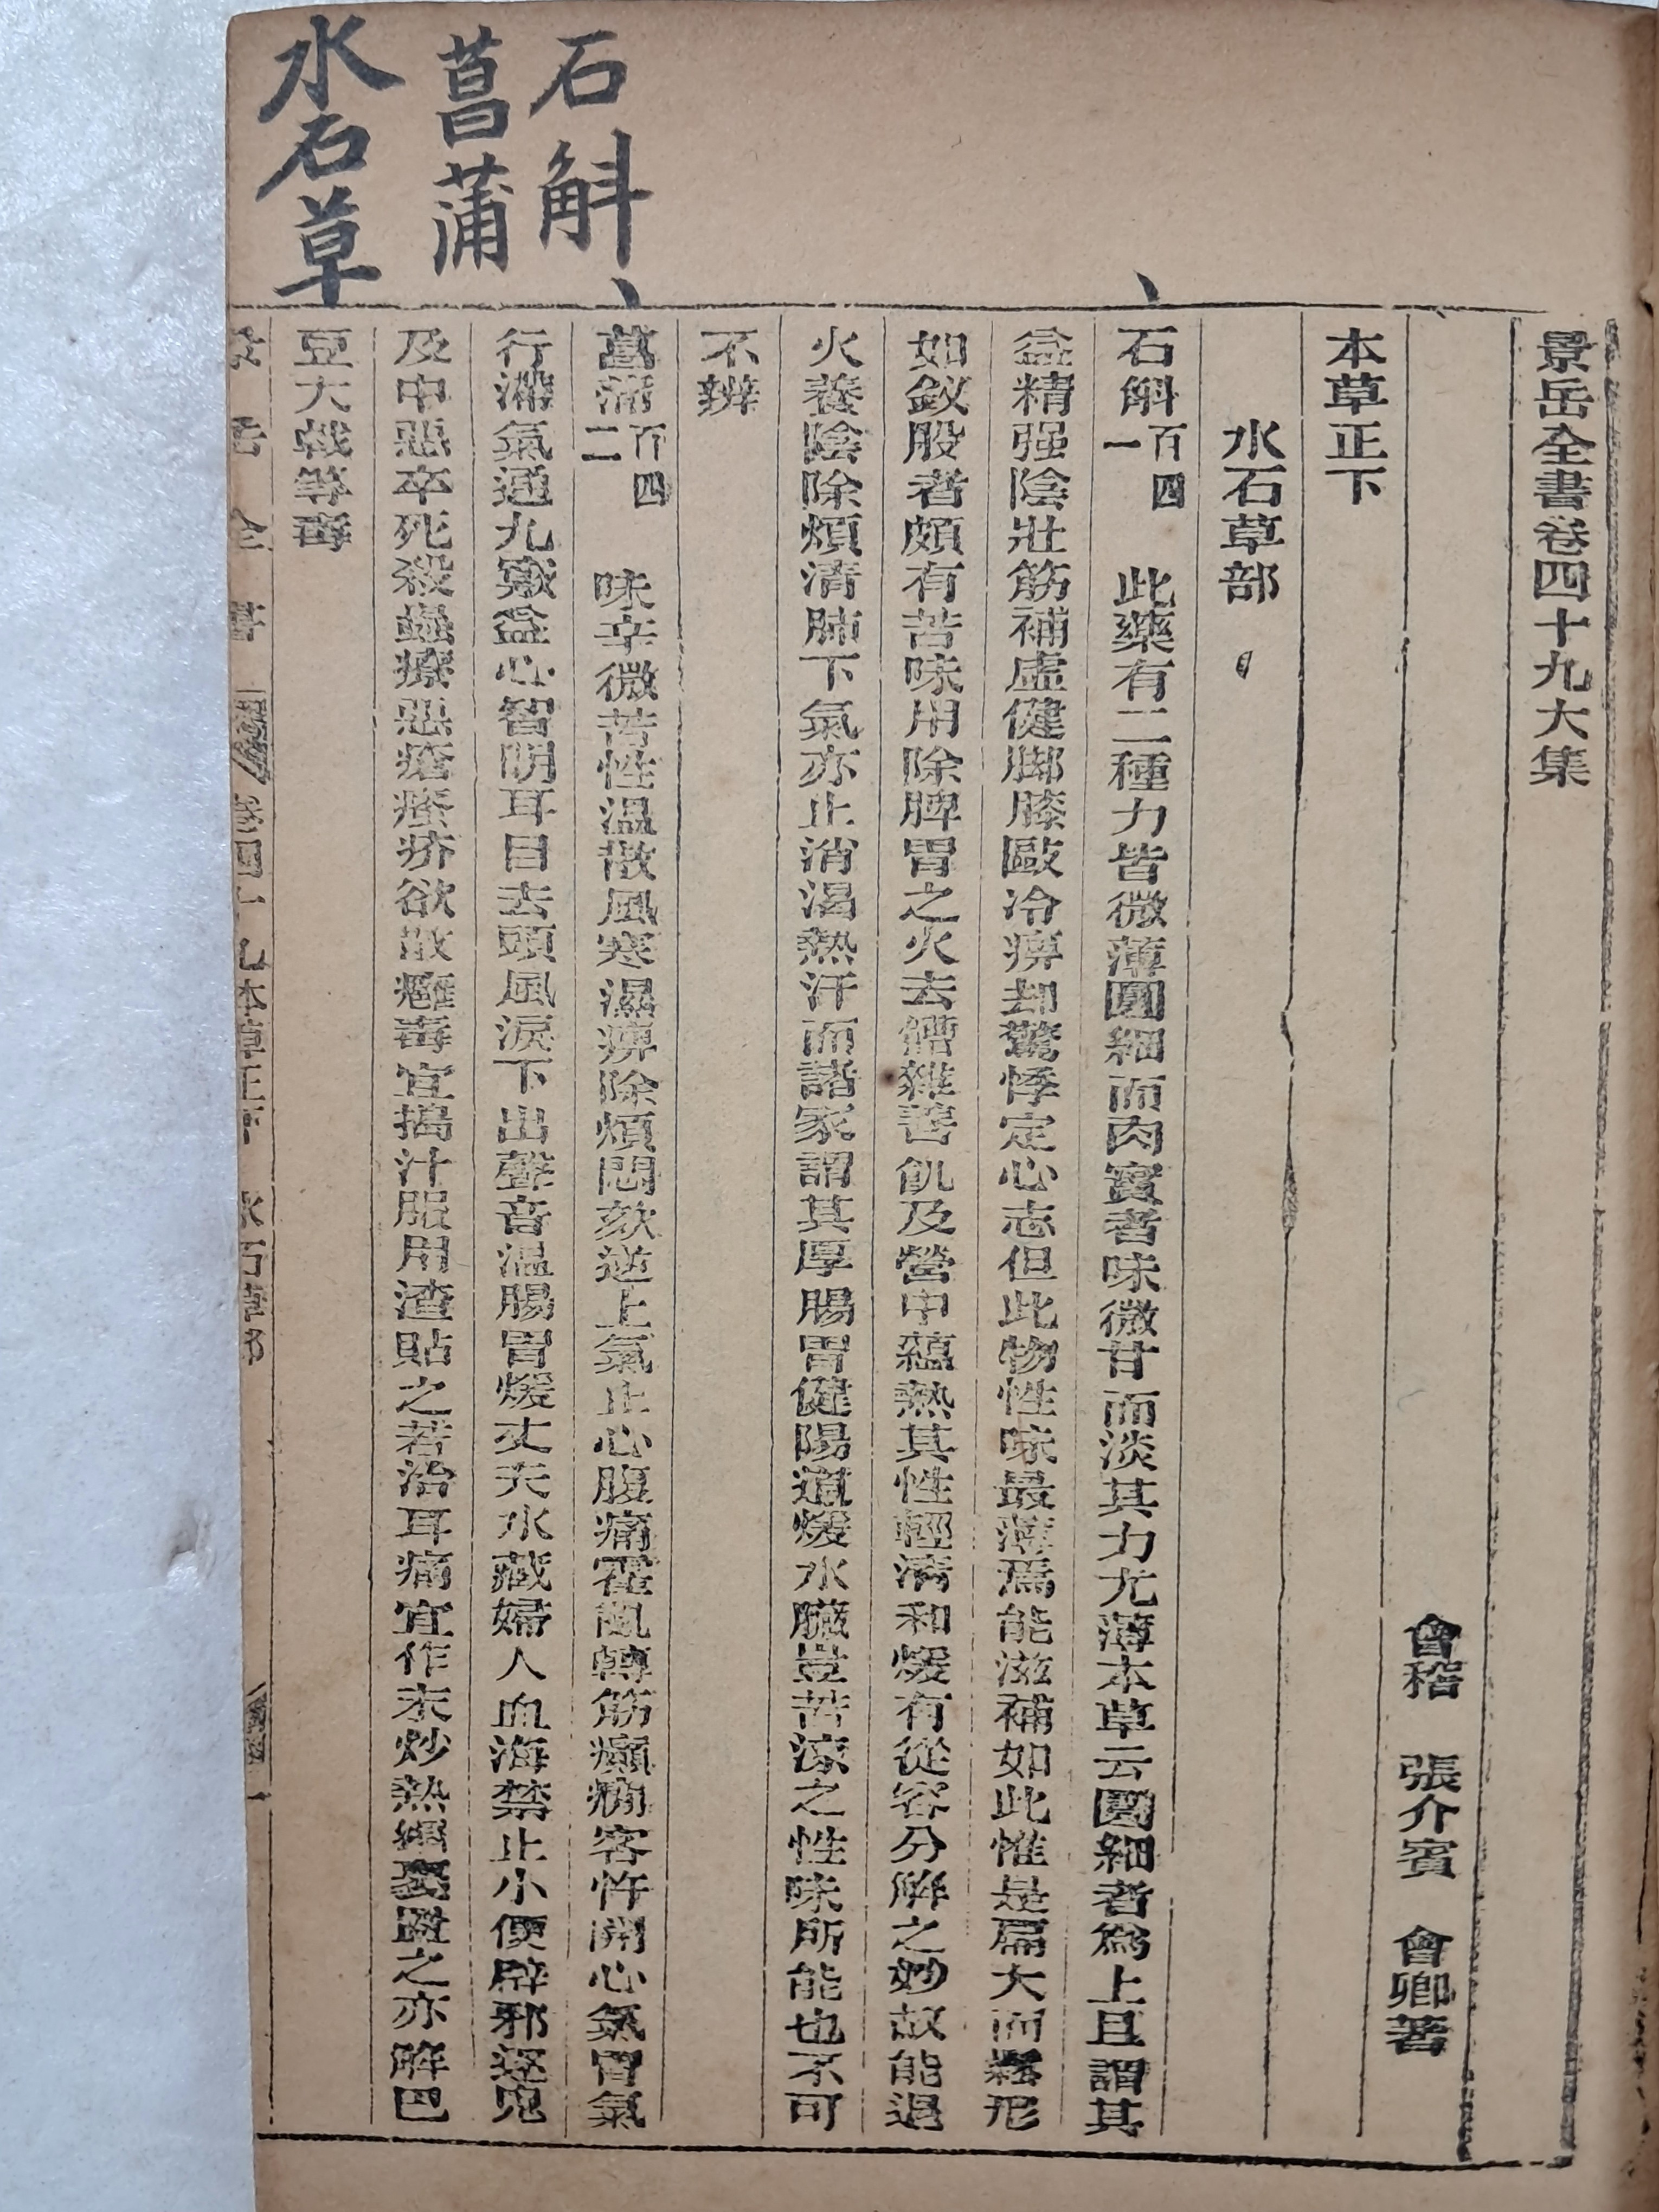 石斛
菖蒲
水石草
景岳全書卷四十九大集
會稽 張介賓 會卿著
本草正下
水石草部
石斛百四一 此藥有二種力皆微薄圓細而肉實者味微甘而淡其力尤薄本草云圓細者爲上且謂其
益精强陰壯筋補虛健脚膝歐冷痹却驚悸定心志但此物性味最薄焉能滋補如此惟是扁大而鬆形
如釵股者頗有苦味用除脾胃之火去嘈雜善飢及營中蘊熱其性輕清和煖有從容分解之妙故能退
火養陰除煩清肺下氣亦止消渴熱汗而諸家謂其厚腸胃健陽道煖水臟豈苦涼之性味所能也不可
不辨
菖蒲百四二 味辛微苦性温散風寒濕痹除煩悶欬逆上氣止心腹痛霍亂轉筋癲癇客忤開心氣胃氣
行滯氣通九竅益心智明耳目去頭風淚下出聲音温腸胃煖丈夫水藏婦人血海禁止小便辟邪逐鬼
及中惡卒死殺蟲療惡瘡瘙疥欲散癰毒宜搗汁服用渣貼之若治耳痛宜作末炒熱絹裹罨之亦解巴
豆大戟等毒
景岳全書 卷四十九本草正下 水石草部 一